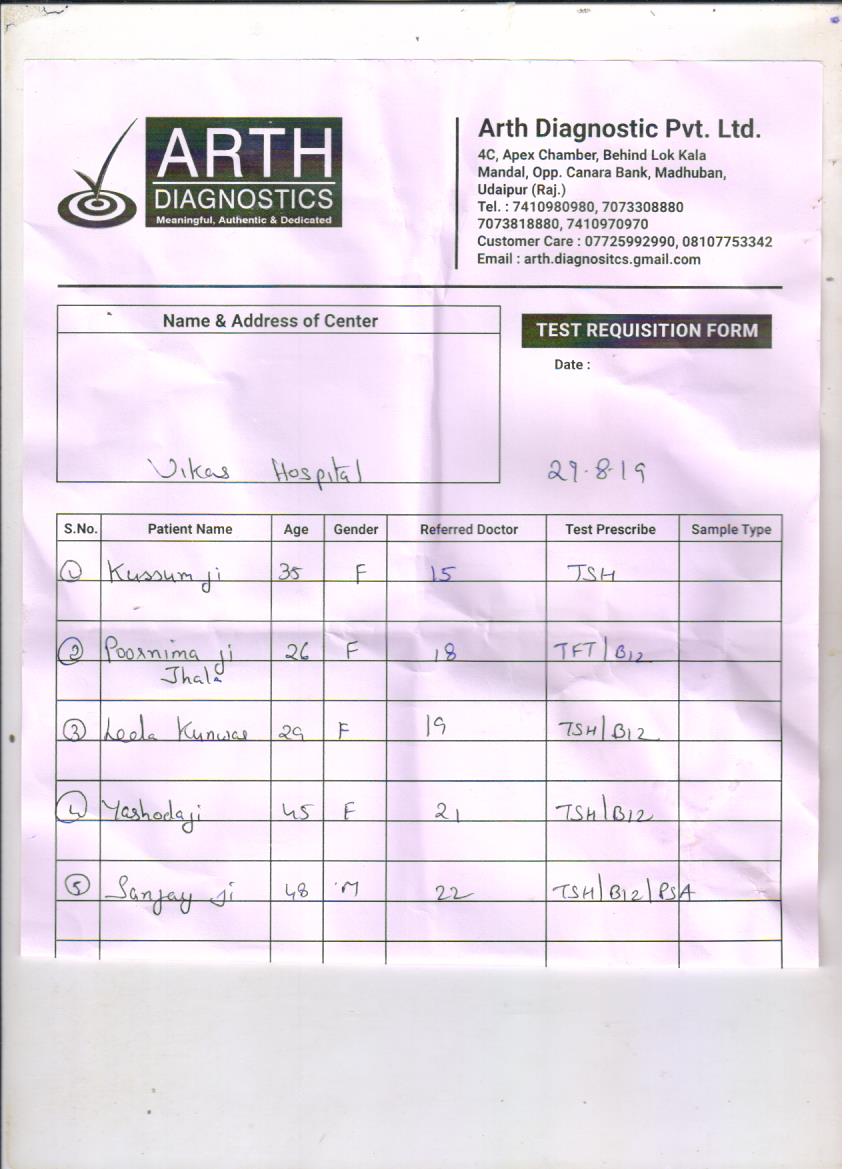 ARTH
DIAGNOSTICS
Meaningful, Authentic & Dedicated
Arth Diagnostic Pvt. Ltd.
4C, Apex Chamber, Behind Lok Kala
Mandal, Opp. Canara Bank, Madhuban,
Udaipur (Raj.)
Tel. : 7410980980, 7073308880
7073818880, 7410970970
Customer Care : 07725992990, 08107753342
Email : arth.diagnositcs.gmail.com
Name & Address of Center
Vikas Hospital
TEST REQUISITION FORM
Date :
29.8.19
S.No. Patient Name Age Gender Referred Doctor Test Prescribe Sample Type
1 Kussum ji 35 F 15 TSH
2 Poornima ji 26 F 18 TFT/B12
Jhala
3 Leela Kunwar 29 F 19 TSH/B12
4 Yashodaji 45 F 21 TSH/B12
5 Sanjay ji 48 M 22 TSH/B12/PSA